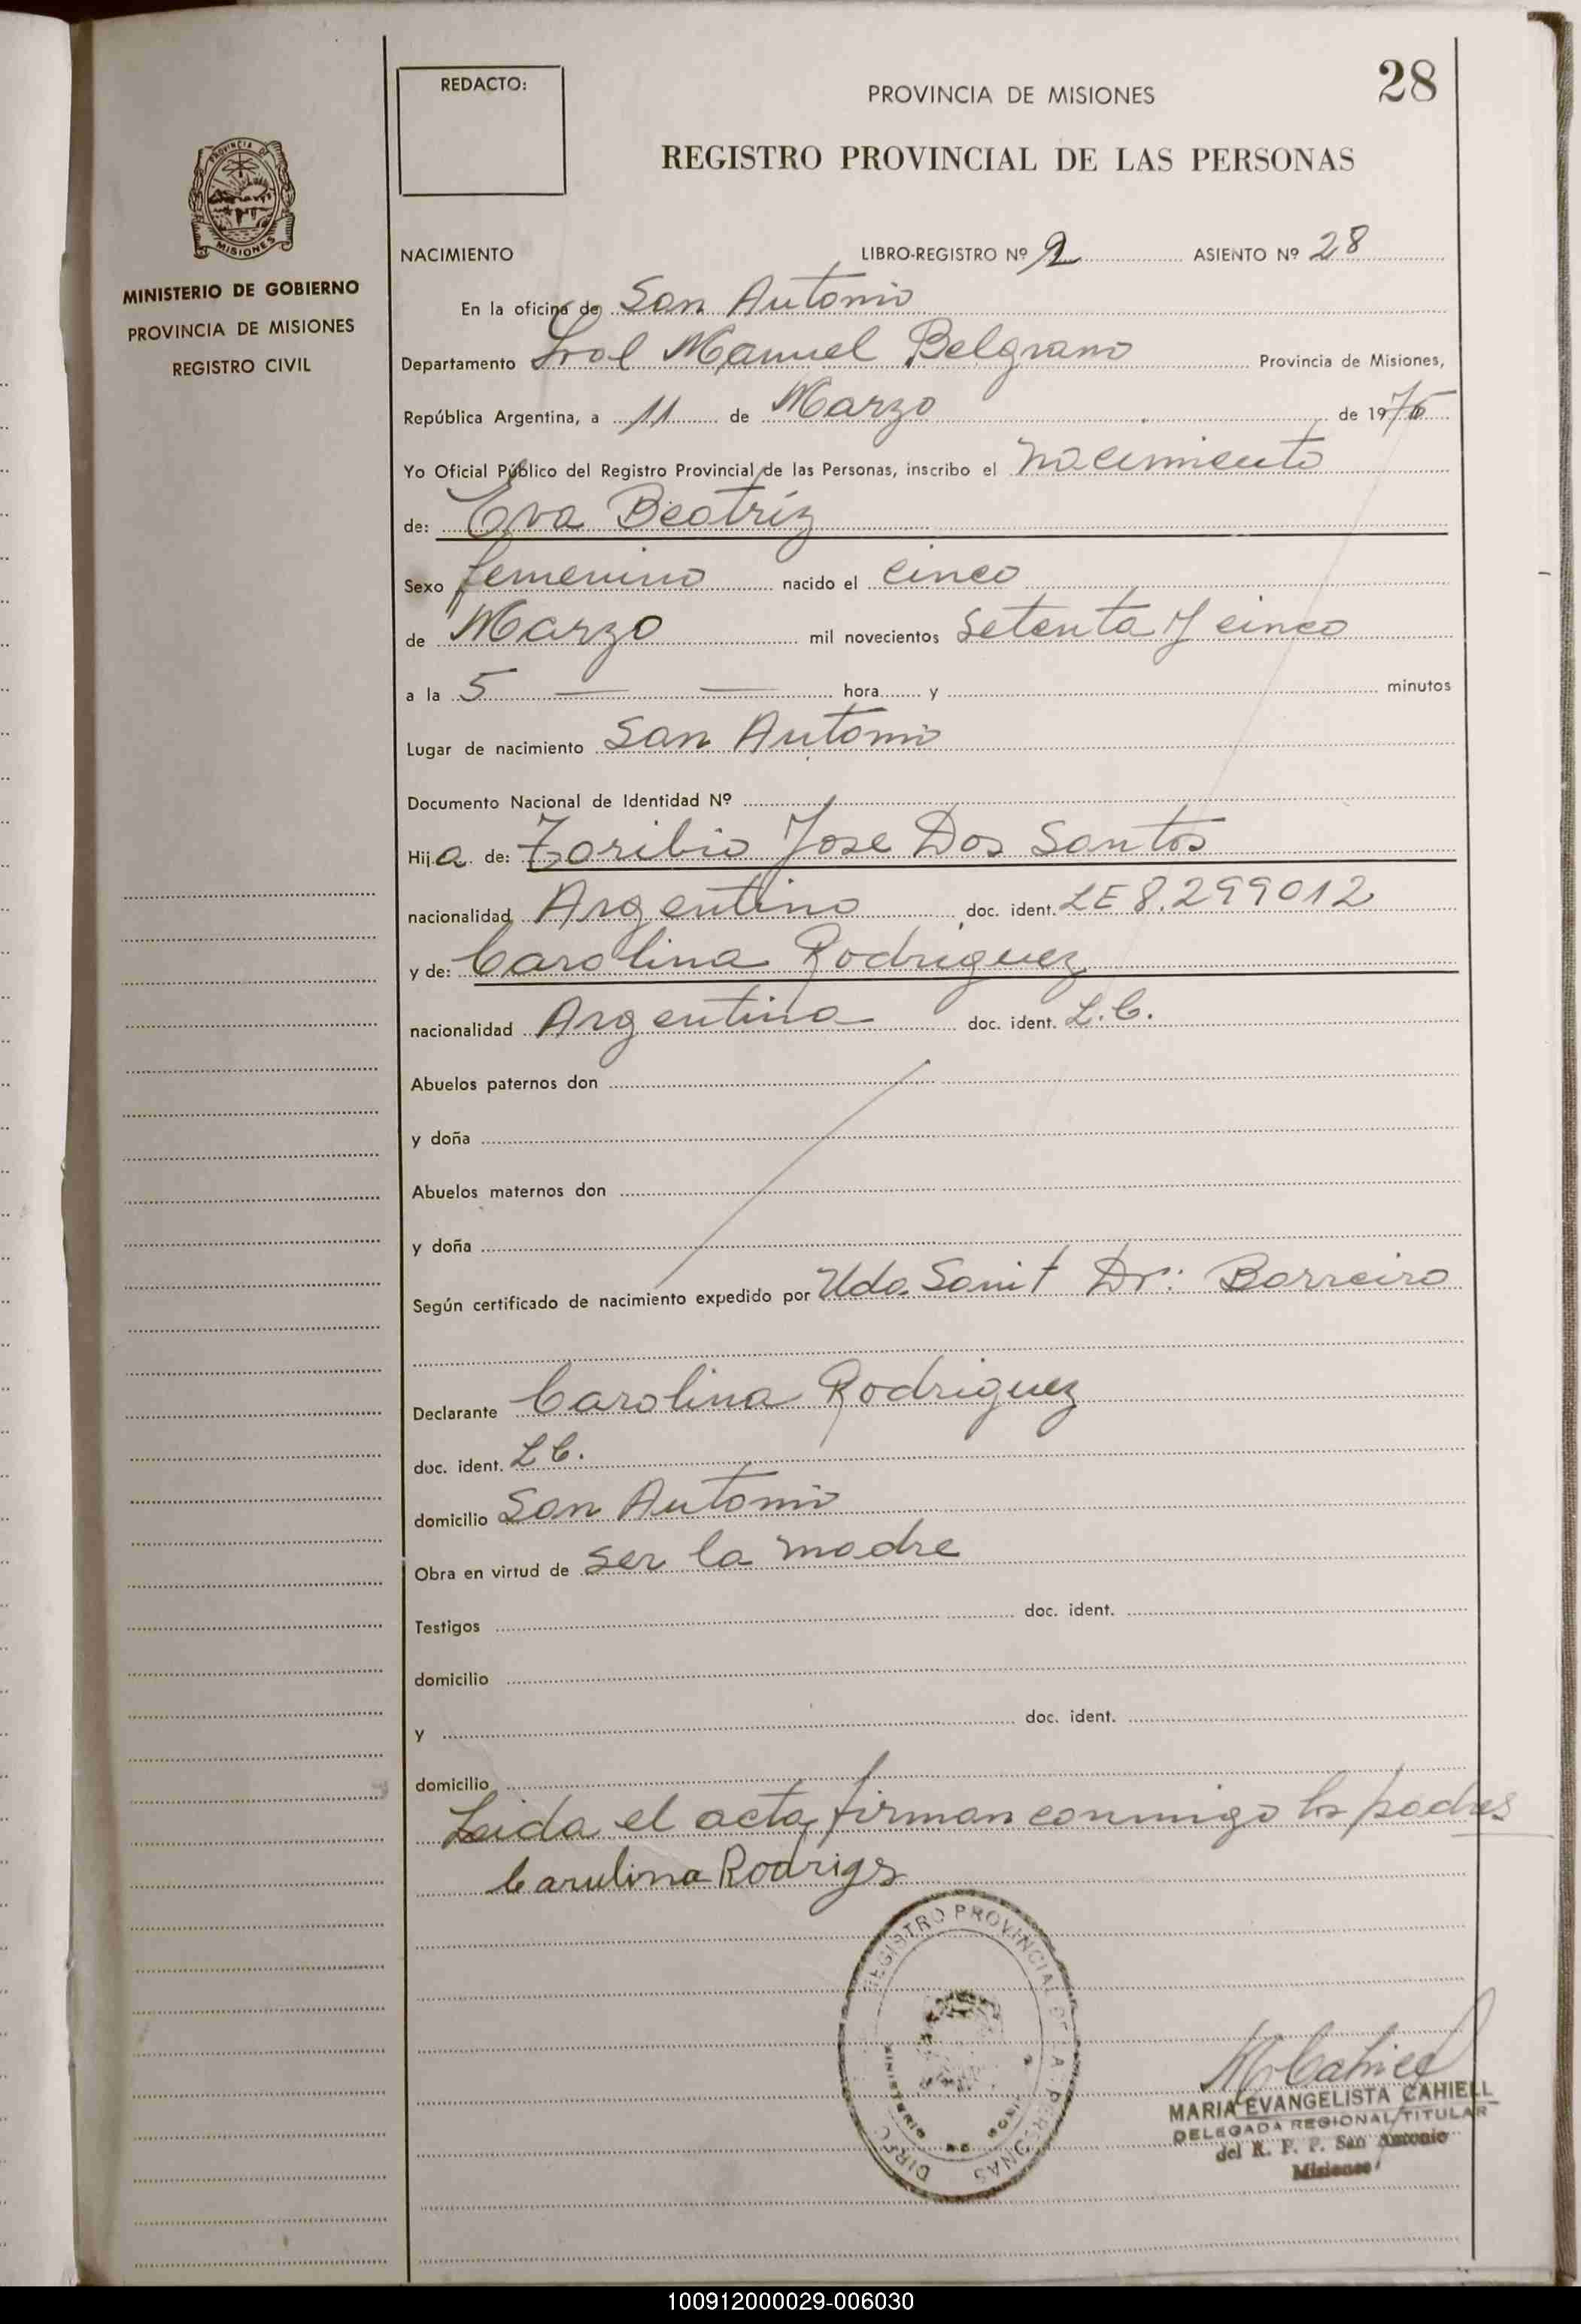 REDACTO:
PROVINCIA DE MISIONES
28
REGISTRO PROVINCIAL DE LAS PERSONAS
PROVINCIA DE
MISIONES
MINISTERIO DE GOBIERNO
PROVINCIA DE MISIONES
REGISTRO CIVIL
NACIMIENTO LIBRO-REGISTRO Nº 2 ASIENTO Nº 28
En la oficina de San Antonio
Departamento Gral Manuel Belgrano Provincia de Misiones,
República Argentina, a 11 de Marzo de 1976
Yo Oficial Público del Registro Provincial de las Personas, inscribo el nacimiento
de: Eva Beatríz
Sexo femenino nacido el cinco
de Marzo mil novecientos setenta y cinco
a la 5 — — hora y minutos
Lugar de nacimiento San Antonio
Documento Nacional de Identidad Nº
Hija de: Toribio Jose Dos Santos
nacionalidad Argentino doc. ident. LE 8.299012
y de: Carolina Rodriguez
nacionalidad Argentina doc. ident. L.C.
Abuelos paternos don
y doña
Abuelos maternos don
y doña
Según certificado de nacimiento expedido por Uda. Sanit Dr: Barreiro
Declarante Carolina Rodriguez
doc. ident. L C.
domicilio San Antonio
Obra en virtud de ser la madre
Testigos doc. ident.
domicilio
y doc. ident.
domicilio
Leida el acta firman conmigo los padres
Carulina Rodrigs
REGISTRO PROVINCIAL DE LA PERSONAS
DIREC
MINISTERIO DE
M Cahiell
MARIA EVANGELISTA CAHIELL
DELEGADA REGIONAL TITULAR
del R. P. P. San Antonio
Misiones
100912000029-006030